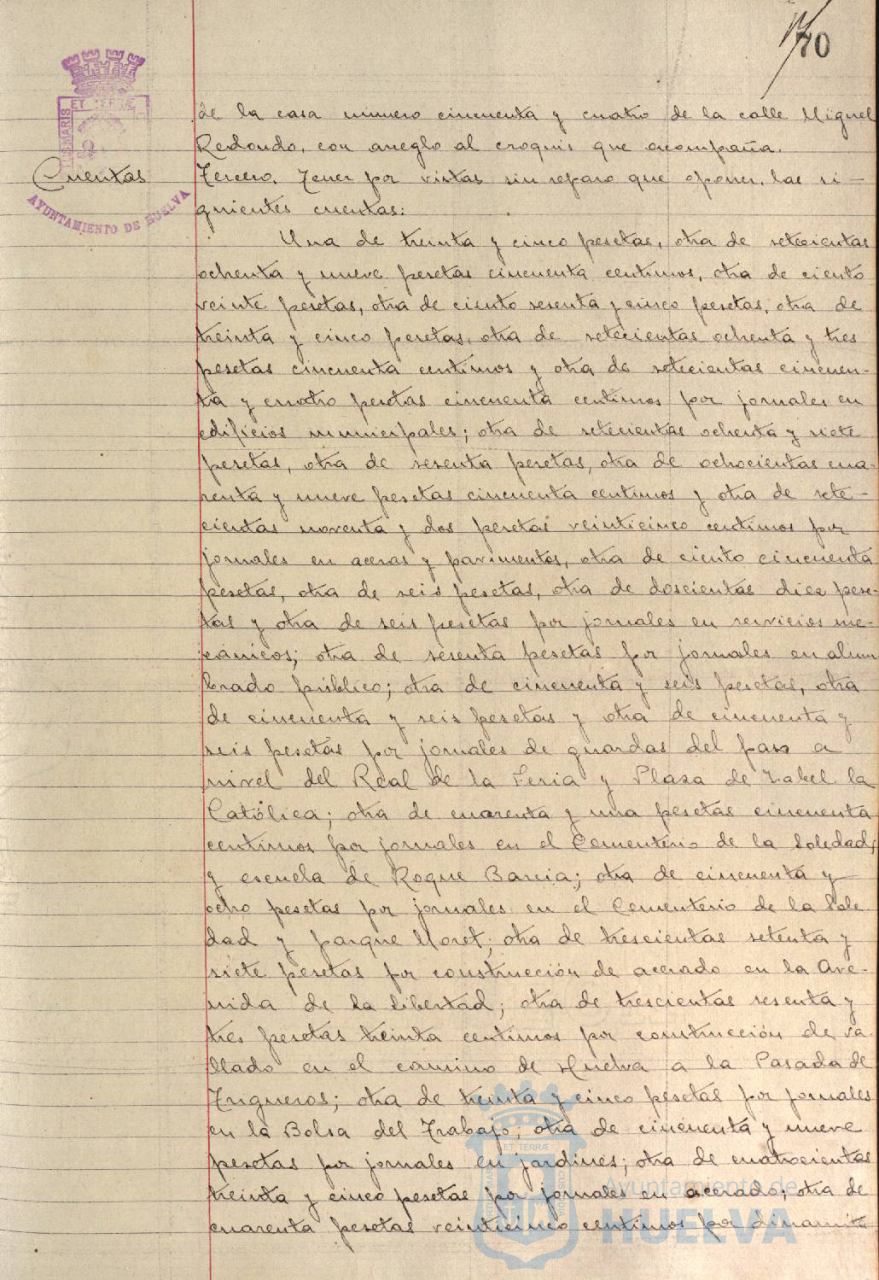 70
de la casa numero cincuenta y cuatro de la calle Miguel
Redondo, con arreglo al croquis que acompaña.
Cuentas
Tercero. Tener por vistas sin reparo que oponer, las si-
guientes cuentas:
AYUNTAMIENTO DE HUELVA
Una de treinta y cinco pesetas, otra de setecientas
ochenta y nueve pesetas cincuenta centimos, otra de ciento
veinte pesetas, otra de ciento sesenta y cinco pesetas, otra de
treinta y cinco pesetas, otra de setecientas ochenta y tres
pesetas cincuenta centimos y otra de setecientas cincuen-
ta y cuatro pesetas cincuenta centimos por jornales en
edificios municipales; otra de setecientas ochenta y siete
pesetas, otra de sesenta pesetas, otra de ochocientas cua-
renta y nueve pesetas cincuenta centimos y otra de sete-
cientas noventa y dos pesetas veinticinco centimos por
jornales en aceras y pavimentos, otra de ciento cincuenta
pesetas, otra de seis pesetas, otra de doscientas diez pese-
tas y otra de seis pesetas por jornales en servicios me-
cánicos; otra de sesenta pesetas por jornales en alum
brado público; otra de cincuenta y seis pesetas, otra
de cincuenta y seis pesetas y otra de cincuenta y
seis pesetas por jornales de guardas del paso a
nivel del Real de la Feria y Plaza de Isabel la
Católica; otra de cuarenta y una pesetas cincuenta
centimos por jornales en el Cementerio de la Soledad,
y escuela de Roque Barcia; otra de cincuenta y
ocho pesetas por jornales en el Cementerio de la Sole
dad y parque Moret; otra de trescientas setenta y
siete pesetas por construcción de acerado en la Ave-
nida de la Libertad; otra de trescientas sesenta y
tres pesetas treinta centimos por construcción de va
llado en el camino de Huelva a la Pasada de
Trigueros; otra de treinta y cinco pesetas por jornales
en la Bolsa del Trabajo; otra de cincuenta y nueve
pesetas por jornales en jardines; otra de cuatrocientas
treinta y cinco pesetas por jornales en acerado; otra de
cuarenta pesetas veinticinco centimos por dinamita
Ayuntamiento de
HUELVA